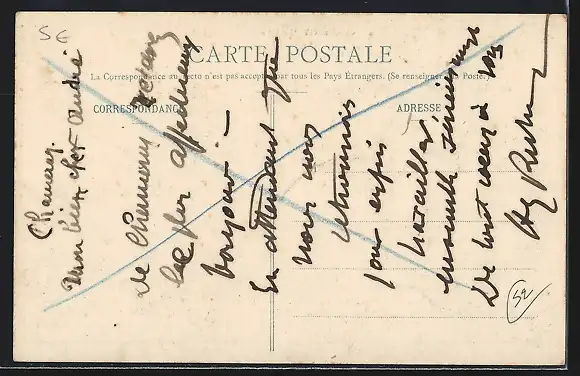 5E
CARTE POSTALE
La Correspondance au recto n'est pas acceptée par tous les Pays Étrangers. (Se renseigner à la Poste.)
CORRESPONDANCE
ADRESSE
Chemery.
Mon bien cher André
De Chemery
bonjour. —
En attendant que
nous nous
retrouvions
pour enfin
travailler
ensemble sérieusement
De tout coeur à vous
52